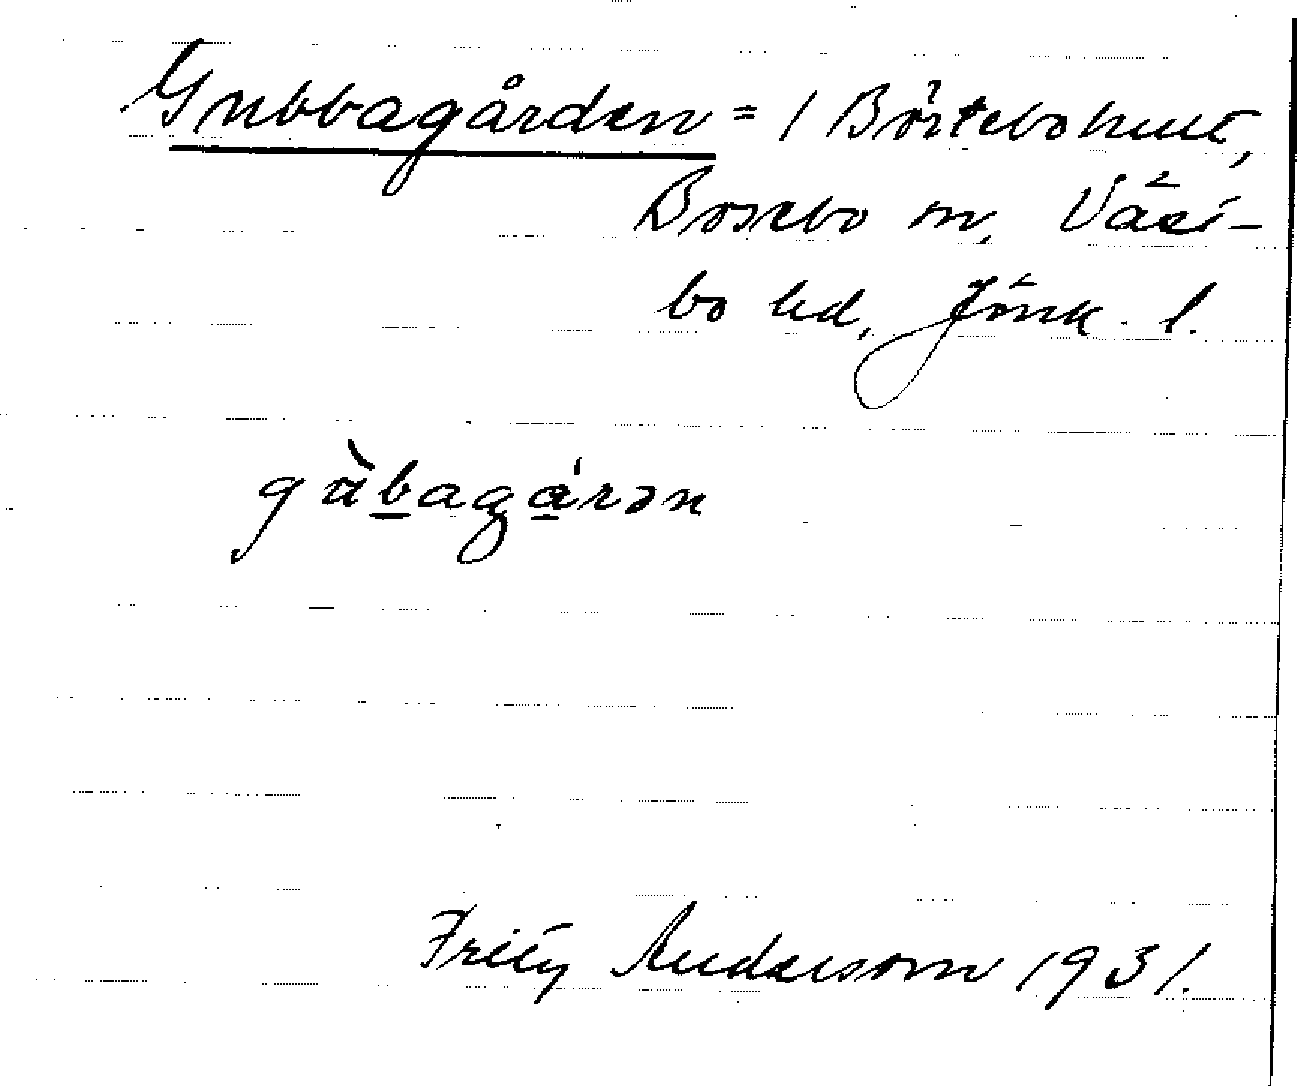 Gubbagården = 1 Börtebohult,
Bosebo sn, Väst-
bo hd, Jönk. l.
gùbagárən
Fritz Andersson 1931.